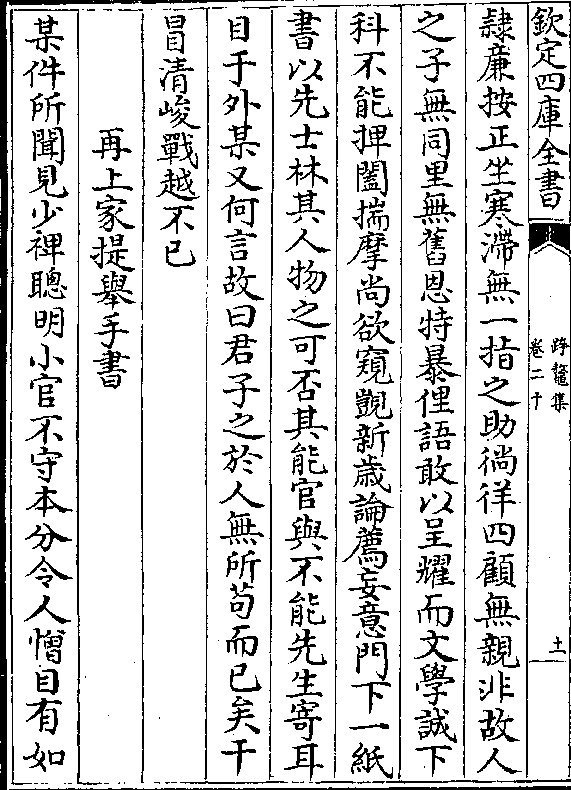 欽定四庫全書
跨鼇集
卷二十
十
隸亷按正坐寒滯無一指之助徜徉四顧無親非故人
之子無同里無舊恩特暴俚語敢以呈耀而文學誠下
科不能捭闔揣摩尚欲窺覬新歲論薦妄意門下一紙
書以先士林其人物之可否其能官與不能先生寄耳
目于外某又何言故曰君子之於人無所苟而已矣干
冒清峻戰越不已
再上家提舉手書
某件所聞見少裨聰明小官不守本分令人憎目有如